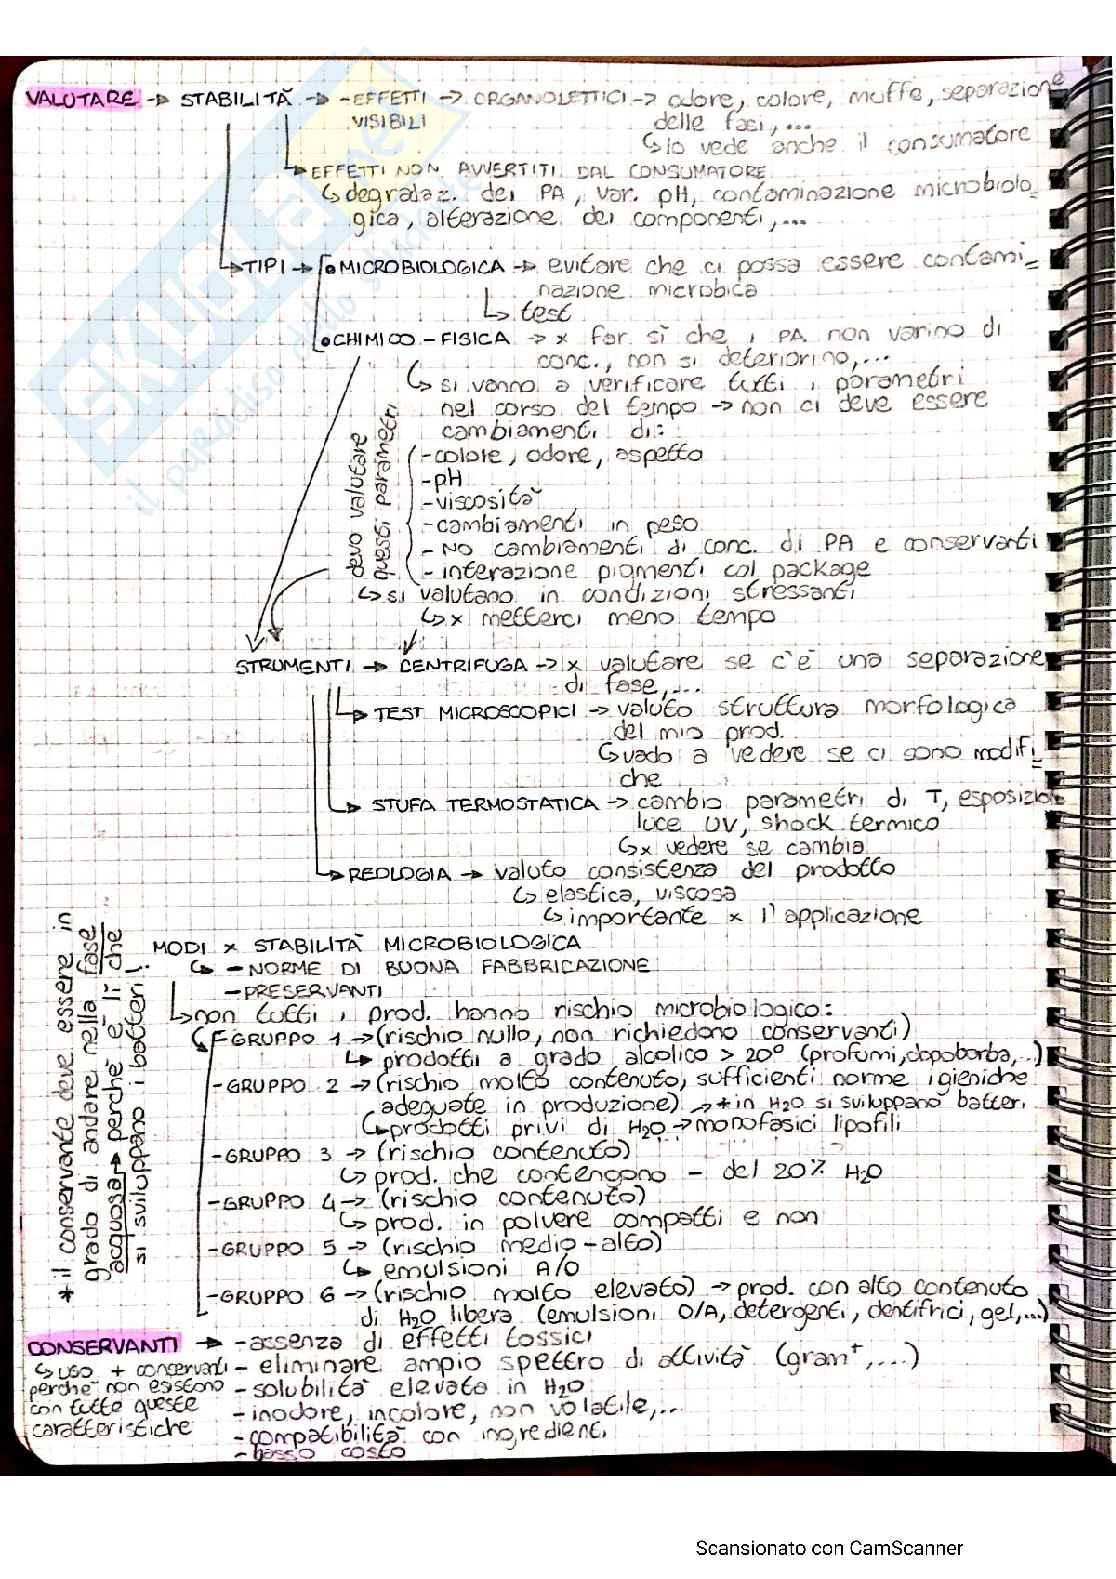 VALUTARE → STABILITÀ → - EFFETTI → ORGANOLETTICI → odore, colore, muffe, separazione
VISIBILI delle fasi,...
↳ lo vede anche il consumatore
→ EFFETTI NON AVVERTITI DAL CONSUMATORE
↳ degradaz. dei PA, var. pH, contaminazione microbiolo_
gica, alterazione dei componenti,...
→ TIPI → • MICROBIOLOGICA → evitare che ci possa essere contami_
nazione microbica
↳ test
• CHIMICO - FISICA → x far sì che i PA non varino di
conc., non si deteriorino,...
↳ si vanno a verificare tutti i parametri
nel corso del tempo → non ci deve essere
cambiamenti di:
devo valutare
questi parametri
- colore, odore, aspetto
- pH
- viscosità
- cambiamenti in peso
- NO cambiamenti di conc. di PA e conservanti
- interazione pigmenti col package
↳ si valutano in condizioni stressanti
↳ x metterci meno tempo
STRUMENTI → CENTRIFUGA → x valutare se c'è una separazione
di fase,...
→ TEST MICROSCOPICI → valuto struttura morfologica
del mio prod.
↳ vado a vedere se ci sono modifi_
che
→ STUFA TERMOSTATICA → cambio parametri di T, esposizione
luce UV, shock termico
↳ x vedere se cambia
→ REOLOGIA → valuto consistenza del prodotto
↳ elastica, viscosa
↳ importante x l'applicazione
MODI x STABILITÀ MICROBIOLOGICA
↳ - NORME DI BUONA FABBRICAZIONE
- PRESERVANTI
↳ non tutti i prod. hanno rischio microbiologico:
- GRUPPO 1 → (rischio nullo, non richiedono conservanti)
↳ prodotti a grado alcolico > 20° (profumi, dopobarba,..)
- GRUPPO 2 → (rischio molto contenuto, sufficienti norme igieniche
adeguate in produzione) → * in H2O si sviluppano batteri
↳ prodotti privi di H2O → monofasici lipofili
- GRUPPO 3 → (rischio contenuto)
↳ prod. che contengono - del 20% H2O
- GRUPPO 4 → (rischio contenuto)
↳ prod. in polvere compatti e non
- GRUPPO 5 → (rischio medio-alto)
↳ emulsioni A/O
- GRUPPO 6 → (rischio molto elevato) → prod. con alto contenuto
di H2O libera (emulsioni O/A, detergenti, dentifrici, gel,...)
* il conservante deve essere in
grado di andare nella fase
acquosa → perché è lì che
si sviluppano i batteri!
CONSERVANTI → - assenza di effetti tossici
↳ uso + conservanti
perché non esistono
con tutte queste
caratteristiche
- eliminare ampio spettro di attività (gram+,...)
- solubilità elevata in H2O
- inodore, incolore, non volatile,...
- compatibilità con ingredienti
- basso costo
Scansionato con CamScanner